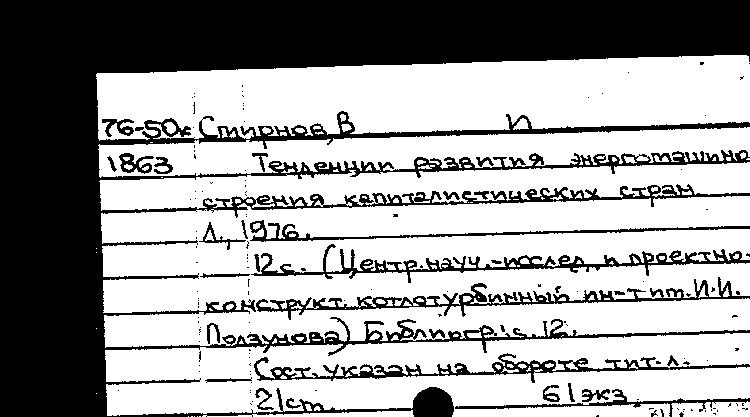 76-50к Смирнов, В П
1863 Тенденции развития энергомашино
строения капиталистических стран.
Л., 1976.
12 с. (Центр. науч.-исслед. и проектно-
конструкт. котлотурбинный ин-т им. И.И.
Ползунова) Библиогр.: с. 12.
Сост. указан на обороте тит. л.
2/ст. 6/экз